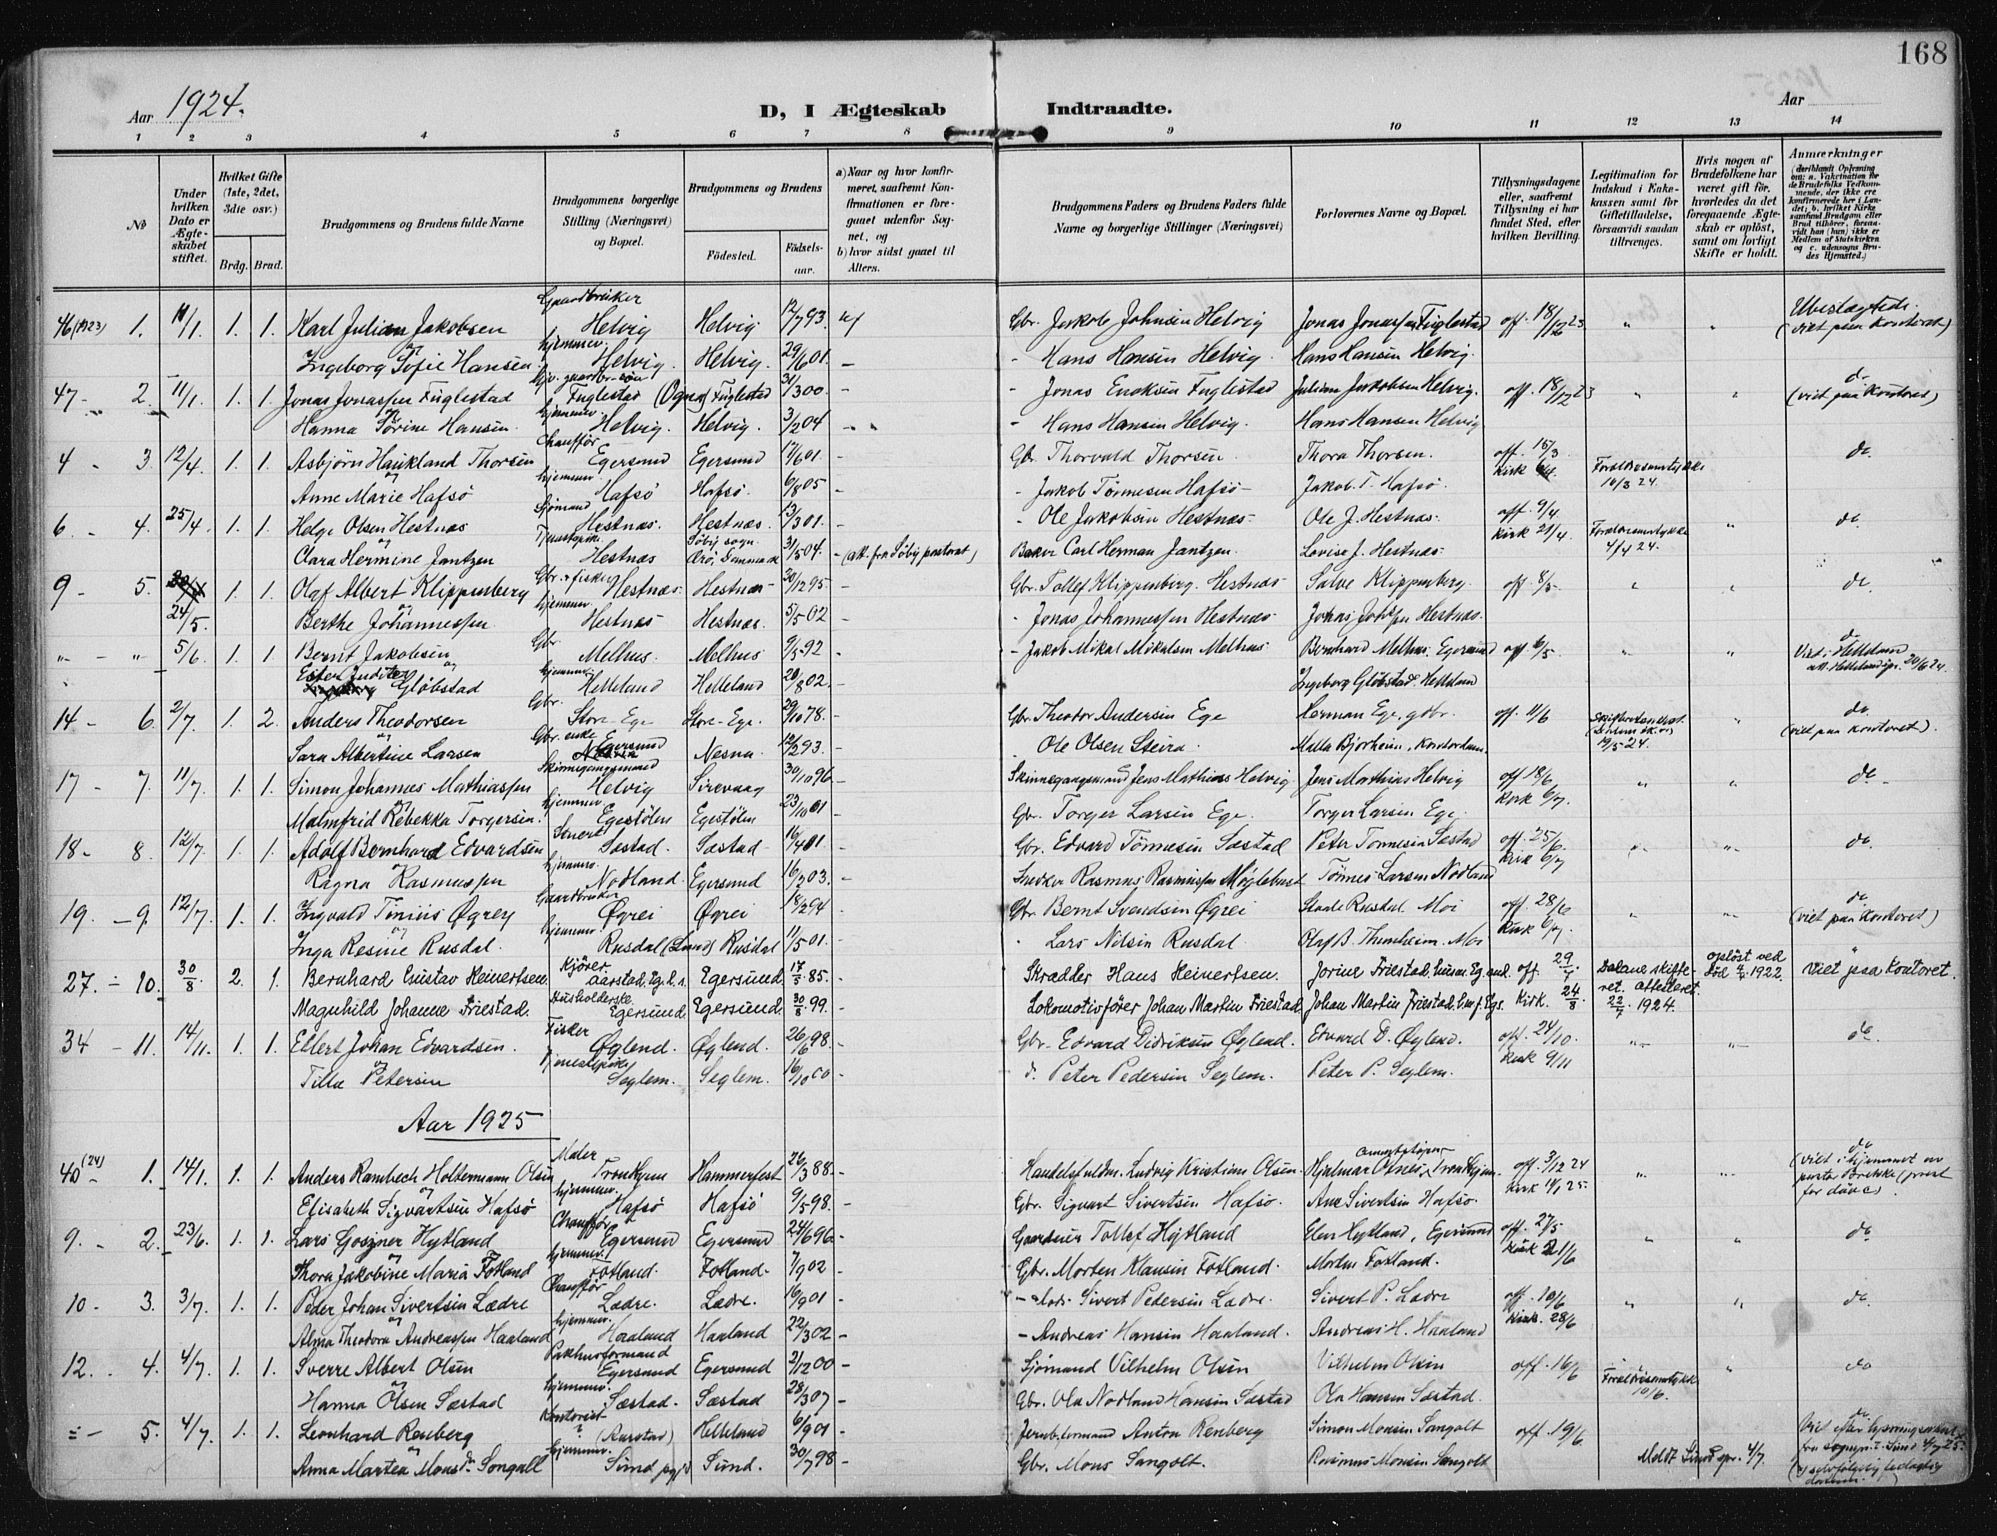 168
Aar 1924.
D, I Ægteskab Indtraadte.
Aar
1 2 3 4 5 6 7 8 9 10 11 12 13 14
No
Under hvilken Dato er Ægteskabet stiftet.
Hvilket Gifte (1ste, 2det, 3die osv.)
Brdg. Brud.
Brudgommens og Brudens fulde Navne
Brudgommens borgerlige Stilling (Næringsvei) og Bopæl.
Brudgommens og Brudens
Fødested. Fødselsaar.
a) Naar og hvor konfirmeret, saafremt Konfirmationen er foregaaet udenfor Sognet, og
b) hvor sidst gaaet til Alters.
Brudgommens Faders og Brudens Faders fulde Navne og borgerlige Stillinger (Næringsvei)
Forlovernes Navne og Bopæl.
Tillysningsdagene eller, saafremt Tillysning ei har fundet Sted, efter hvilken Bevilling.
Legitimation for Indskud i Enkekassen samt for Giftetilladelse, forsaavidt saadan tiltrænges.
Hvis nogen af Brudefolkene har været gift før, hvorledes da det foregaaende Ægteskab er opløst, samt om lovligt Skifte er holdt.
Anmærkninger
46 (1923) 1. 11/1 1. 1. Karl Julian Jakobsen Gaardbruker Helvig Helvig 12/7 93. Gbr. Jakob Johnsen Helvig Jonas Jonassen Fuglestad off. 18/12 23 " " Ubeslægtede. (viet paa Kontoret)
og Ingeborg Sofie Hansen hjemmev. Helvig. Helvig. 29/6 01 - - Hans Hansen Helvig. Hans Hansen Helvig.
47 - 2. 11/1. 1. 1. Jonas Jonassen Fuglestad Fuglestad (Ogna) Fuglestad 31/3 00 - - Jonas Enoksen Fuglestad Julian Jakobsen Helvig. off 18/12 23 " " do (viet paa Kontoret)
og Hanna Sørine Hansen. hjemmev. Helvig. Helvig. 3/2 04 - Hans Hansen Helvig. Hans Hansen Helvig
4 - 3 12/4. 1. 1. Asbjørn Haukland Thorsen Chauffør Egersund Egersund 17/6 01 - Gbr. Thorvald Thorsen. Thora Thorsen. off. 15/3 kirk do.
og Anne Marie Hafsø hjemmev. Hafsø Hafsø. 6/8 05 - - Jakob Tønnesen Hafsø - Jakob T. Hafsø. Forældresamtykke 10/3 24.
6. - 4. 25/4. 1. 1. Helge Olsen Hestnæs Sjømand Hestnæs. Hestnæs. 13/3 01. - - Ole Jakobsen Hestnæs. Ole J. Hestnæs. off. 9/4 Kirk 21/4. Forældresamtykke 4/4 24. " do
og Clara Hermine Jantzen Tjenestepike. Hestnæs Søby sogn. Ærø, Danmark 31/5 04. - (att. fra Søby pastorat) Baker Carl Herman Jantzen. Lovise J. Hestnæs.
9 - 5. 24/5. 1. 1. Olaf Albert Klippenberg Gbr. + fisker Hestnæs. Hestnæs 20/12 95. - Gbr. Tollef Klippenberg. Hestnæs Salve Klippenberg. off 8/5. " do.
og Berthe Johannessen hjemmev. Hestnæs Hestnæs. 5/5 02 - - Jonas Johannessen Hestnæs
5/6. 1. 1 Bernt Jakobsen Gbr. Melhus. Melhus 9/5 92 - - Jakob Mikal Mikalsen Melhus Bernhard Melhus. Egersund off 6/5 " do. Viet i Helleland
og Ester Judite Gløbstad hjemmev. Helleland Helleland 20/8 02. Ingeborg Gløbstad. Helleland
14 - 6. 2/7. 1. 2. Anders Theodorsen Gbr. Store-Ege Store-Ege. 29/10 78. Gbr. Theodor Andersen Ege Herman Ege, gdbr. off. 11/6 do. (viet paa kontoret.)
og Sara Albertine Larsen Gbr. enke Egersund Nesna 12/2 93. - Ole Olsen Steira. Milla Bjorheim, Kontordame 19/5 24.
17 - 7. 11/7. 1. 1. Simon Johannes Mathiassen Skinnegangsmand Helvig Sirevaag 30/10 96 - Skinnegangsmand Jens Mathias Helvig Jens Mathias Helvig off 18/6 Kirk 6/7. " " do -
og Malmfrid Rebekka Torgersen. hjemmev. Egestølen Egestølen 23/10 01 - Gbr. Torger Larsen Ege. Torger Larsen Ege.
18 - 8. 12/7. 1. 1. Adolf Bernhard Edvardsen Sæstad. Sæstad 16/4 01 - Gbr. Edvard Tønnesen Sæstad Peter Tønnesen Sæstad off. 25/6. Kirk 6/7 do.
og Ragna Rasmussen hjemmev. Nodland. Egersund 16/2 03. - Snedker Rasmus Rasmussen Møglebust Tønnes Larsen Nodland
19. - 9. 12/7. 1. 1. Ingvald Tinius Øgrey Gaardbruker Øgrei Øgrei 18/2 94. - Gbr. Bernt Svendsen Øgrei Staale Rusdal. Moi off 28/6 Kirk 6/7. " do. (viet paa Kontoret)
og Inga Resine Rusdal. hjemmev. Rusdal (Lund) Rusdal 11/5 01. - Lars Nilsen Rusdal Olaf B. Thunheim. Moi
27. - 10. 30/8 2. 1. Bernhard Gustav Reinertsen Kjører. Aarstad. Eg. l. s. Egersund. 17/5 85. - Skrædder Hans Reinertsen. Jorine Friestad. husm. Eg. and. off. 29/7. Dalane skifteret. attesteret. 22/7. 1924. opløst ved død 1922. Viet paa Kontoret.
Magnhild Johanne Friestad. Husholderske Egersund. Egersund. 30/8 99. - Lokomotivfører Johan Martin Friestad. Johan Martin Friestad. Kirk. 24/8
34 - 11. 14/11. 1. 1. Ellert Johan Edvardsen. Fisker Øglend. Øglend. 26/6 98. - Gbr. Edvard Didriksen Øglend. Edvard D. Øglend. off. 24/10. Kirk 9/11 do.
og Tilla Petersen Tjenestepike Seglem. Seglem. 16/10 00 - d. Peter Pedersen Seglem. Peter P. Seglem.
Aar 1925
40 (24) 1. 14/1. 1. 1. Anders Rambech Holtermann Olsen Maler Trondhjem Hammerfest 26/3 88. - Handelsfuldm. Ludvig Kristian Olsen. Hjalmar Osnes, Trondhjem. off. 3/12 24 Kirk 11/1 25. do (viet i hjemmet av pastor Brekke (prest for døve).
og Elisabeth Sigvartsen Hafsø hjemmev. Hafsø Hafsø 9/5 98. - Gbr. Sigvart Sivertsen Hafsø. Ane Sivertsen Hafsø.
9. - 2. 23/6. 1. 1. Lars Goszner Hytland Chauffør Egersund Egersund 24/6 96. - Gartner Tollef Hytland Elen Hytland, Egersund off. 27/5 Kirk 21/6 " do
og Thora Jakobine Maria Fotland hjemmev. Fotland. Fotland. 7/9 02 - Gbr. Morten Klausen Fotland. Morten Fotland.
10 - 3. 3/7. 1. 1. Peder Johan Sivertsen Lædre Chauffør Lædre. Lædre. 16/9 01 - Sivert Pedersen Lædre. Sivert P. Lædre off. 10/6 Kirk. 28/6 " " do.
og Alma Theodora Andreassen Haaland hjemmev. Haaland Haaland 22/3 02 - - Andreas Hansen Haaland. Andreas H. Haaland
12. . 4. 4/7. 1. 1. Sverre Albert Olsen Pakhusformand Egersund Egersund 2/12 00 - Sjømand Vilhelm Olsen Vilhelm Olsen off. 16/6 Forældresamtykke 10/6. " do
og Hanna Olsen Sæstad hjemmev. Sæstad. Sæstad 28/3 07 - Gbr. Ola Nodland Hansen Sæstad Ola Hansen Sæstad.
5. 4/7. 1. 1. Leonhard Renberg Kontorist (Aarstad) Helleland 6/9 01 - Jernb. formand Anton Renberg Simon Monsen Sangolt off. 19/6. do
og Anna Martea Monsdr. Songull hjemmev. Sund pgjd Sund. 30/7 98 - Gbr. Mons Sangolt. Rasmus Monsen Sangolt Meldt Sund spr. 4/7.